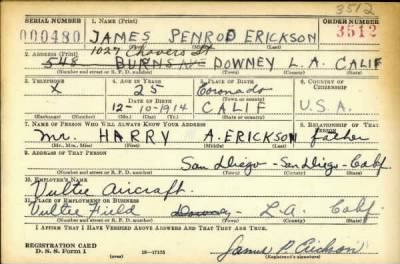 3512
SERIAL NUMBER 1. NAME (Print) ORDER NUMBER
000480 JAMES PENROD ERICKSON 3512
(First) (Middle) (Last)
2. ADDRESS (Print) 1027 St
548 BURNS AVE DOWNEY L.A. CALIF
(Number and street or R. F. D. number) (Town) (County) (State)
3. TELEPHONE 4. AGE IN YEARS 5. PLACE OF BIRTH 6. COUNTRY OF CITIZENSHIP
X 25 Coronado
DATE OF BIRTH (Town or county)
12-10-1914 CALIF U.S.A.
(Mo.) (Day) (Yr.) (State or country)
7. NAME OF PERSON WHO WILL ALWAYS KNOW YOUR ADDRESS 8. RELATIONSHIP OF THAT PERSON
Mr. HARRY A. ERICKSON father
(Mr., Mrs., Miss) (First) (Middle) (Last)
9. ADDRESS OF THAT PERSON
San Diego - San Diego - Calif.
(Number and street or R. F. D. number) (Town) (County) (State)
10. EMPLOYER'S NAME
Vultee Aircraft.
11. PLACE OF EMPLOYMENT OR BUSINESS
Vultee Field Downey - L.A. Calif.
(Number and street or R. F. D. number) (Town) (County) (State)
I AFFIRM THAT I HAVE VERIFIED ABOVE ANSWERS AND THAT THEY ARE TRUE.
REGISTRATION CARD
D. S. S. Form 1 (over) 16-17105 James P. Erickson
(Registrant's signature)